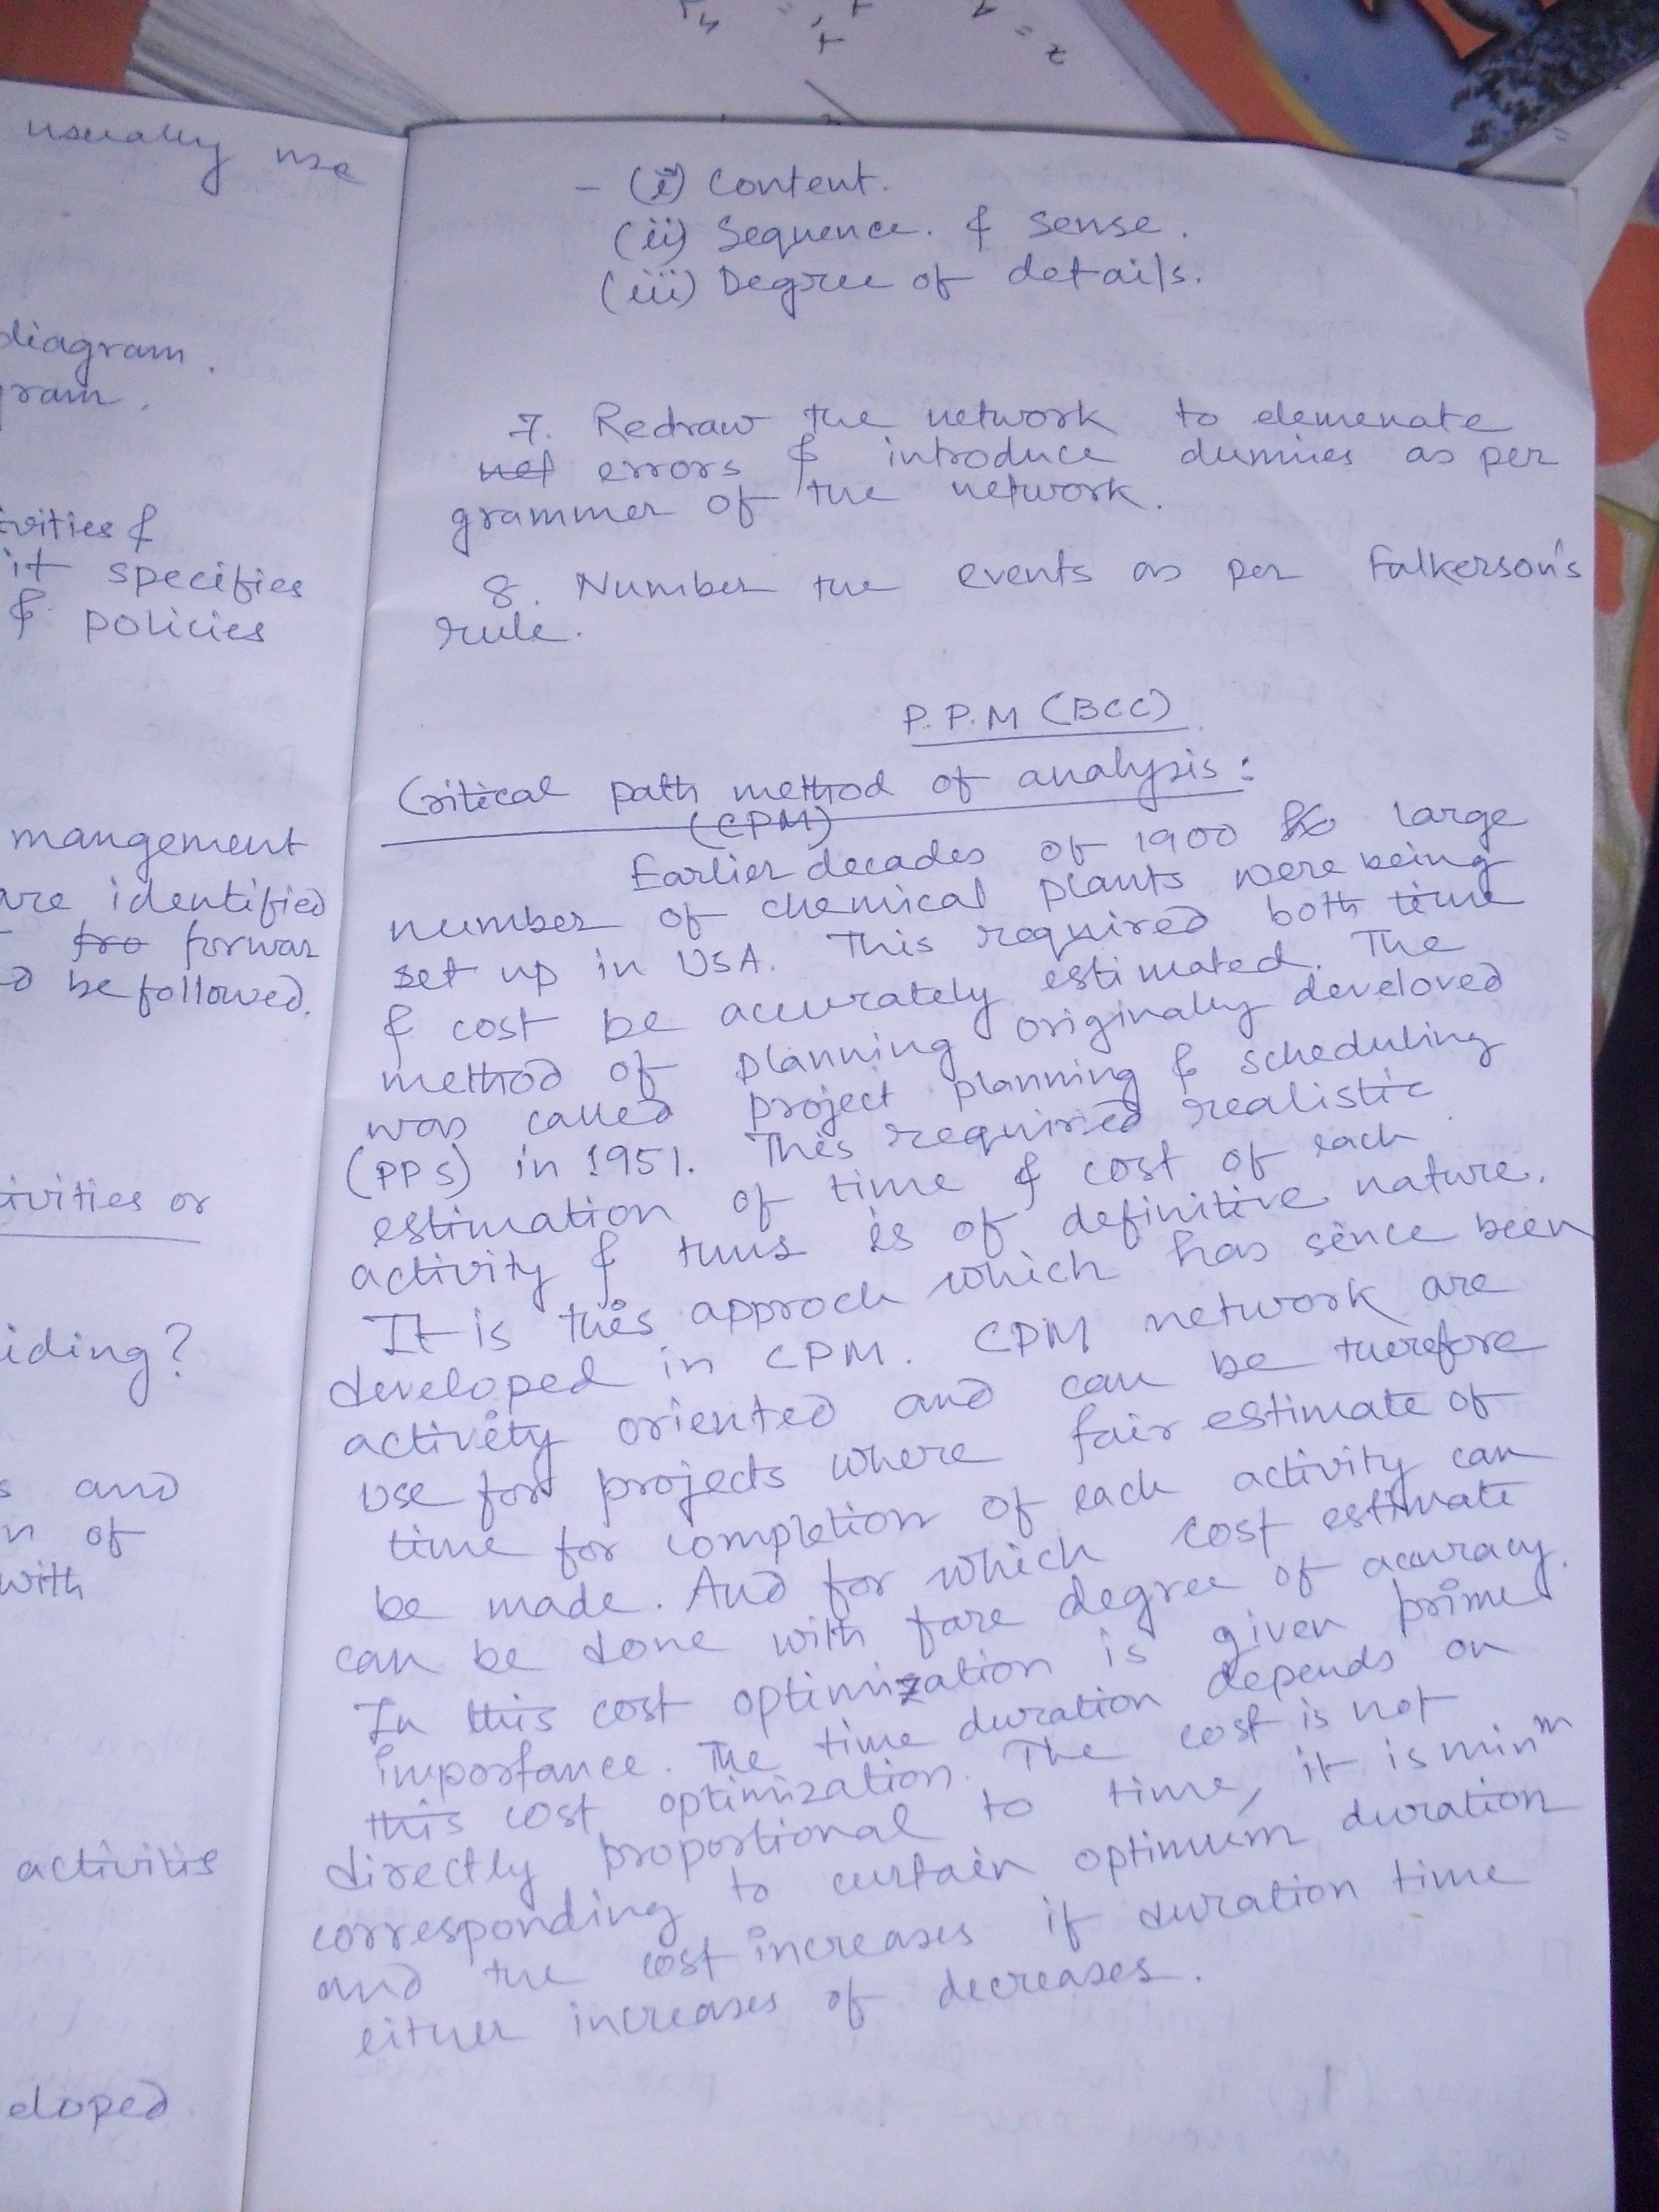 usually use
diagram.
gram.
tivities &
it specifies
& policies
mangement
are identified
fro forwar
d be followed.
tivities or
iding?
s and
n of
with
activitis
eloped
- (i) Content.
(ii) Sequence. & sense.
(iii) Degree of details.
7. Redraw the network to elemenate
net errors & introduce dumies as per
grammer of the network.
8. Number the events as per Falkerson's
rule.
P.P.M (BCC)
Critical path method of analysis:
(CPM)
Earlier decades of 1900 large
number of chemical plants were being
set up in USA. This required both time
& cost be accurately estimated. The
method of planning originally develoved
was called project planning & scheduling
(PPS) in 1951. This required realistic
estimation of time & cost of each
activity & thus is of definitive nature.
It is this approch which has since been
developed in CPM. CPM network are
activity oriented and can be therefore
use for projects where fair estimate of
time for completion of each activity can
be made. And for which cost estimate
can be done with fare degree of accuracy.
In this cost optimization is given prime
importance. The time duration depends on
this cost optimization. The cost is not
directly proportional to time, it is minm
corresponding to curtain optimum duration
and the cost increases if duration time
either increases of decreases.